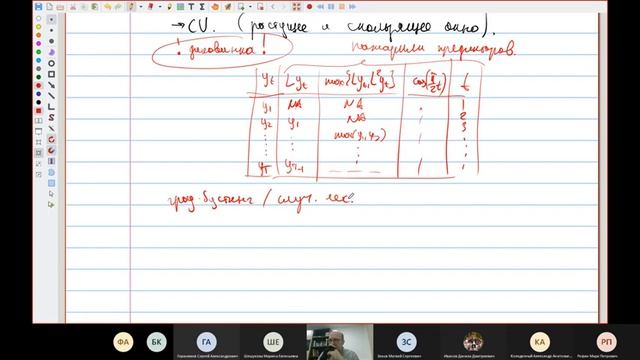 → CV. (растущее и скользящее окно).
! диковинка ! нажарили предикторов.
yt Lyt max{Lyt, L²yt} cos(π/2 t) t
y1 NA NA 1
y2 y1 NA 2
max(y1, y2) 3
yT yT-1
град. бустинг / случ. лес
ФА БК ГА ШЕ ЗС ИД КА РП